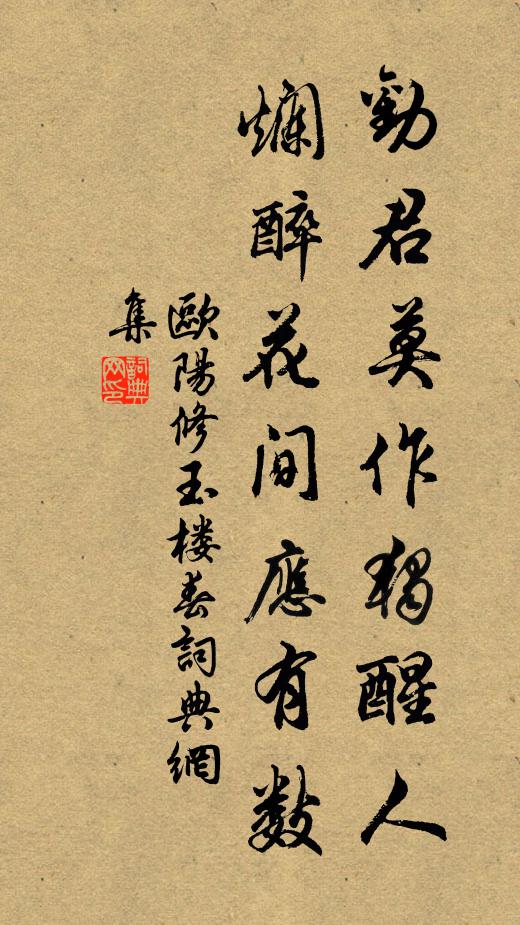 勸君莫作獨醒人
爛醉花間應有數
歐陽修玉楼春詞典網
集
詞典
网印